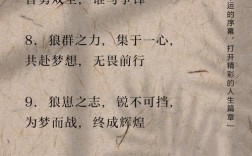 8. 狼群之力，集于一心，
共赴梦想，无畏前行
9. 狼崽之志，锐不可挡，
为梦而战，终成辉煌
运的序幕，打开精彩的人生篇章”